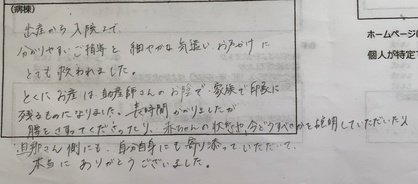 (病棟)
出産から入院まで
分かりやすいご指導と 細やかな気遣い お声かけに
とても救われました。
とくにお産は助産師さんのお陰で、家族で印象に
残るものになりました。長時間かかりましたが
腰をさすってくださったり、赤ちゃんの状態や、今どうすべきかを説明していただいたり
旦那さん側にも、自分自身にも寄り添っていただいて、
本当に ありがとうございました。
ホームページ
個人が特定